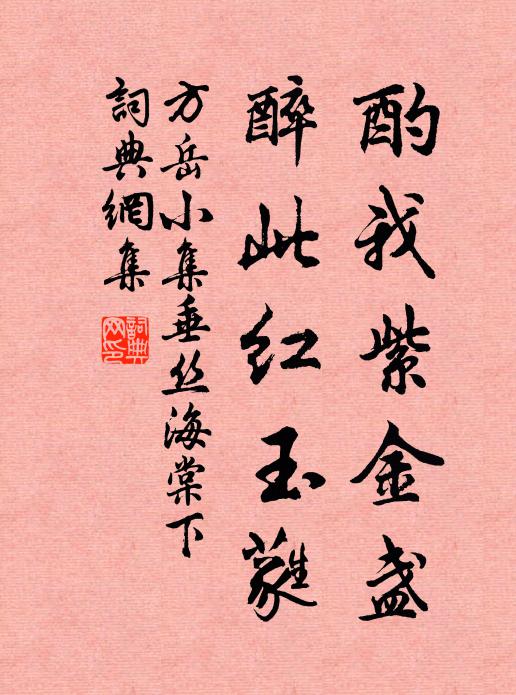 酌我紫金盏
醉此红玉蕤
方岳小集垂丝海棠下
詞典網集
詞典網印